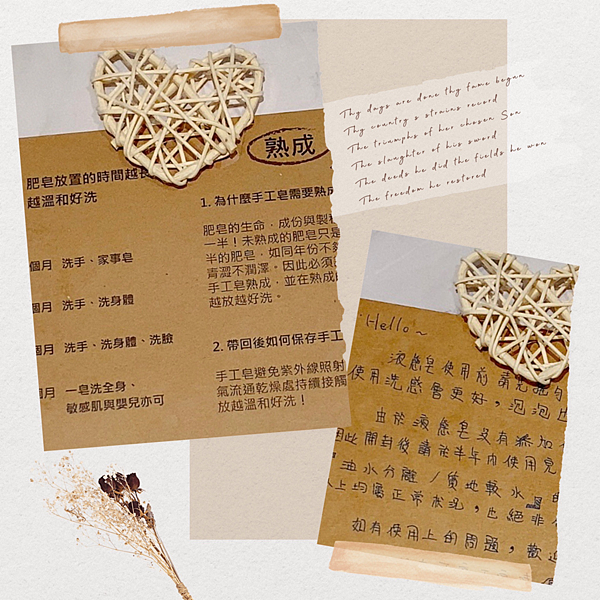 肥皂放置的時間越長
越溫和好洗
個月 洗手、家事皂
個月 洗手、洗身體
個月 洗手、洗身體、洗臉
個月 一皂洗全身、
敏感肌與嬰兒亦可
熟成
1. 為什麼手工皂需要熟成
肥皂的生命，成份與製
一半！未熟成的肥皂只是
半的肥皂，如同年份不
青澀不潤澤。因此必須
手工皂熟成，並在熟成
越放越好洗。
2. 帶回後如何保存手工
手工皂避免紫外線照射
氣流通乾燥處持續接觸
放越溫和好洗！
Thy days are done thy fame began
Thy country's strains record
The triumphs of her chosen Son
The slaughter of his sword
The deeds he did the fields he won
The freedom he restored
Hello~
液態皂使用前請先
使用洗感會更好，泡泡也
由於液態皂沒有添加
因此開封後請於半年內使用完
油水分離／質地較水
上均屬正常狀況，也絕非
如有使用上的問題，歡迎